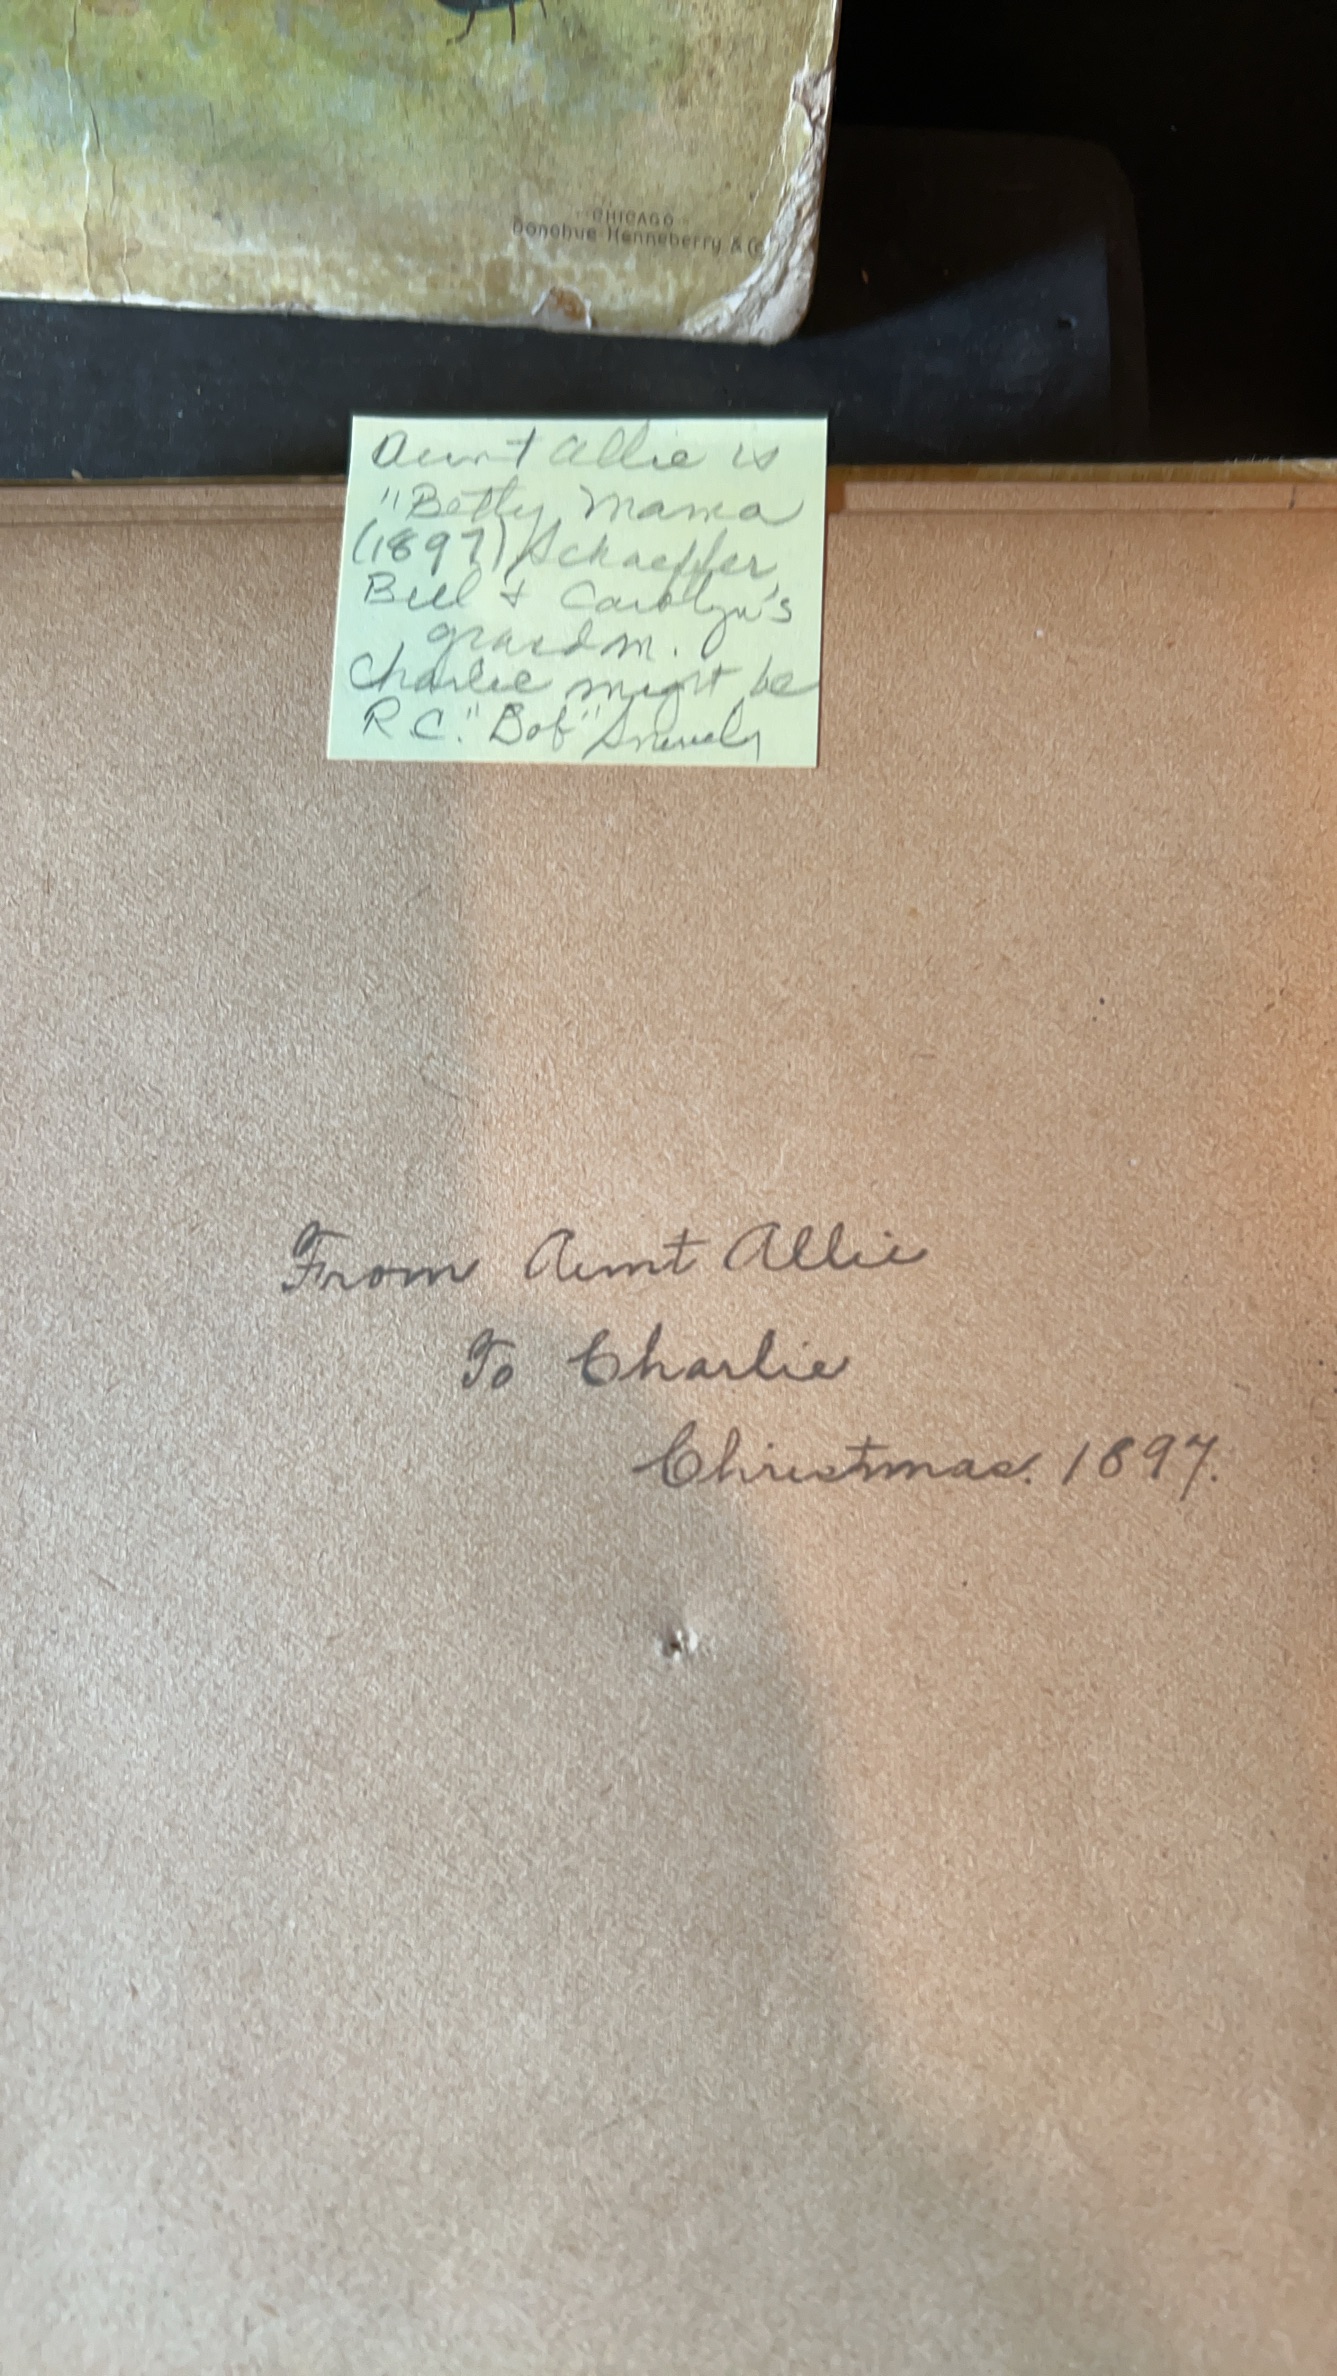 CHICAGO
Donohue Henneberry & Co
Aunt Allie is
"Betty Mama
(1897) Schaeffer
Bill & Carolyn's
grandm.
Charlie might be
R.C. "Bob" Snively
From Aunt Allie
To Charlie
Christmas. 1897.